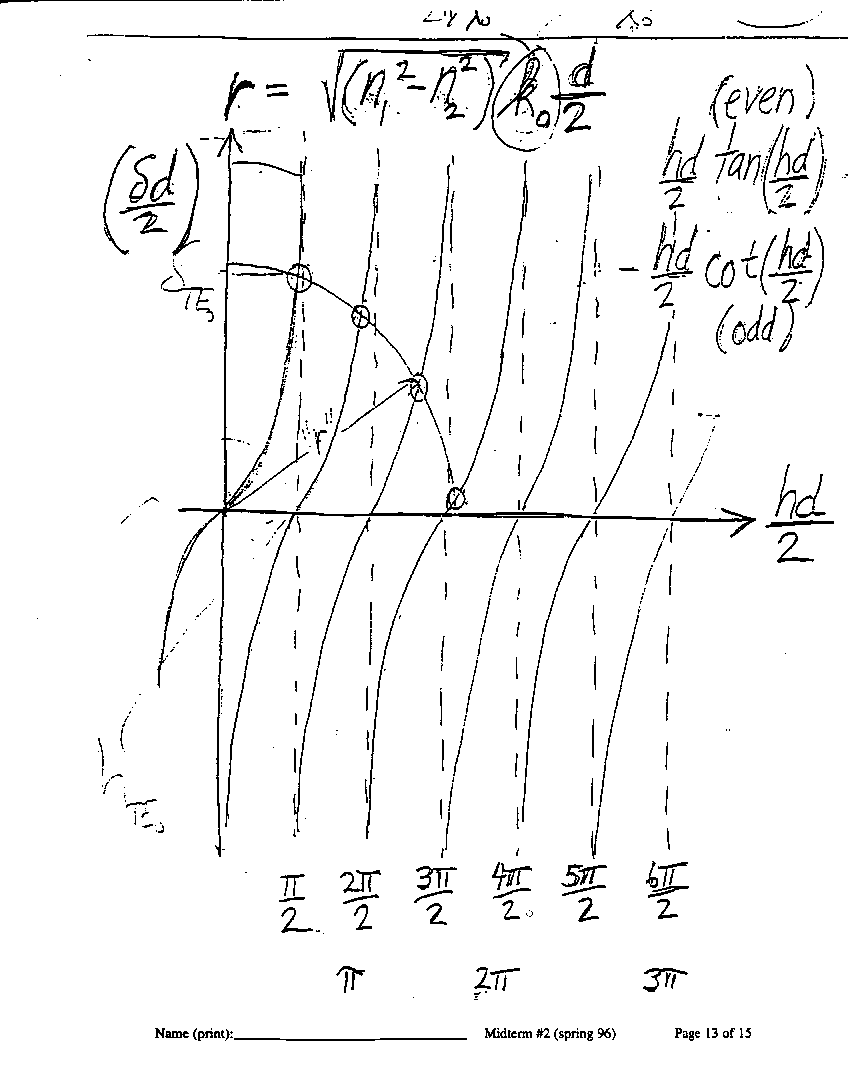 r = √(n₁² - n₂²) k₀ d/2
(even)
hd/2 tan(hd/2)
(δd/2)
- hd/2 cot(hd/2)
(odd)
δ_TE₀
"r"
hd/2
h_TE₀
π/2 2π/2 3π/2 4π/2 5π/2 6π/2
π 2π 3π
Name (print): Midterm #2 (spring 96) Page 13 of 15